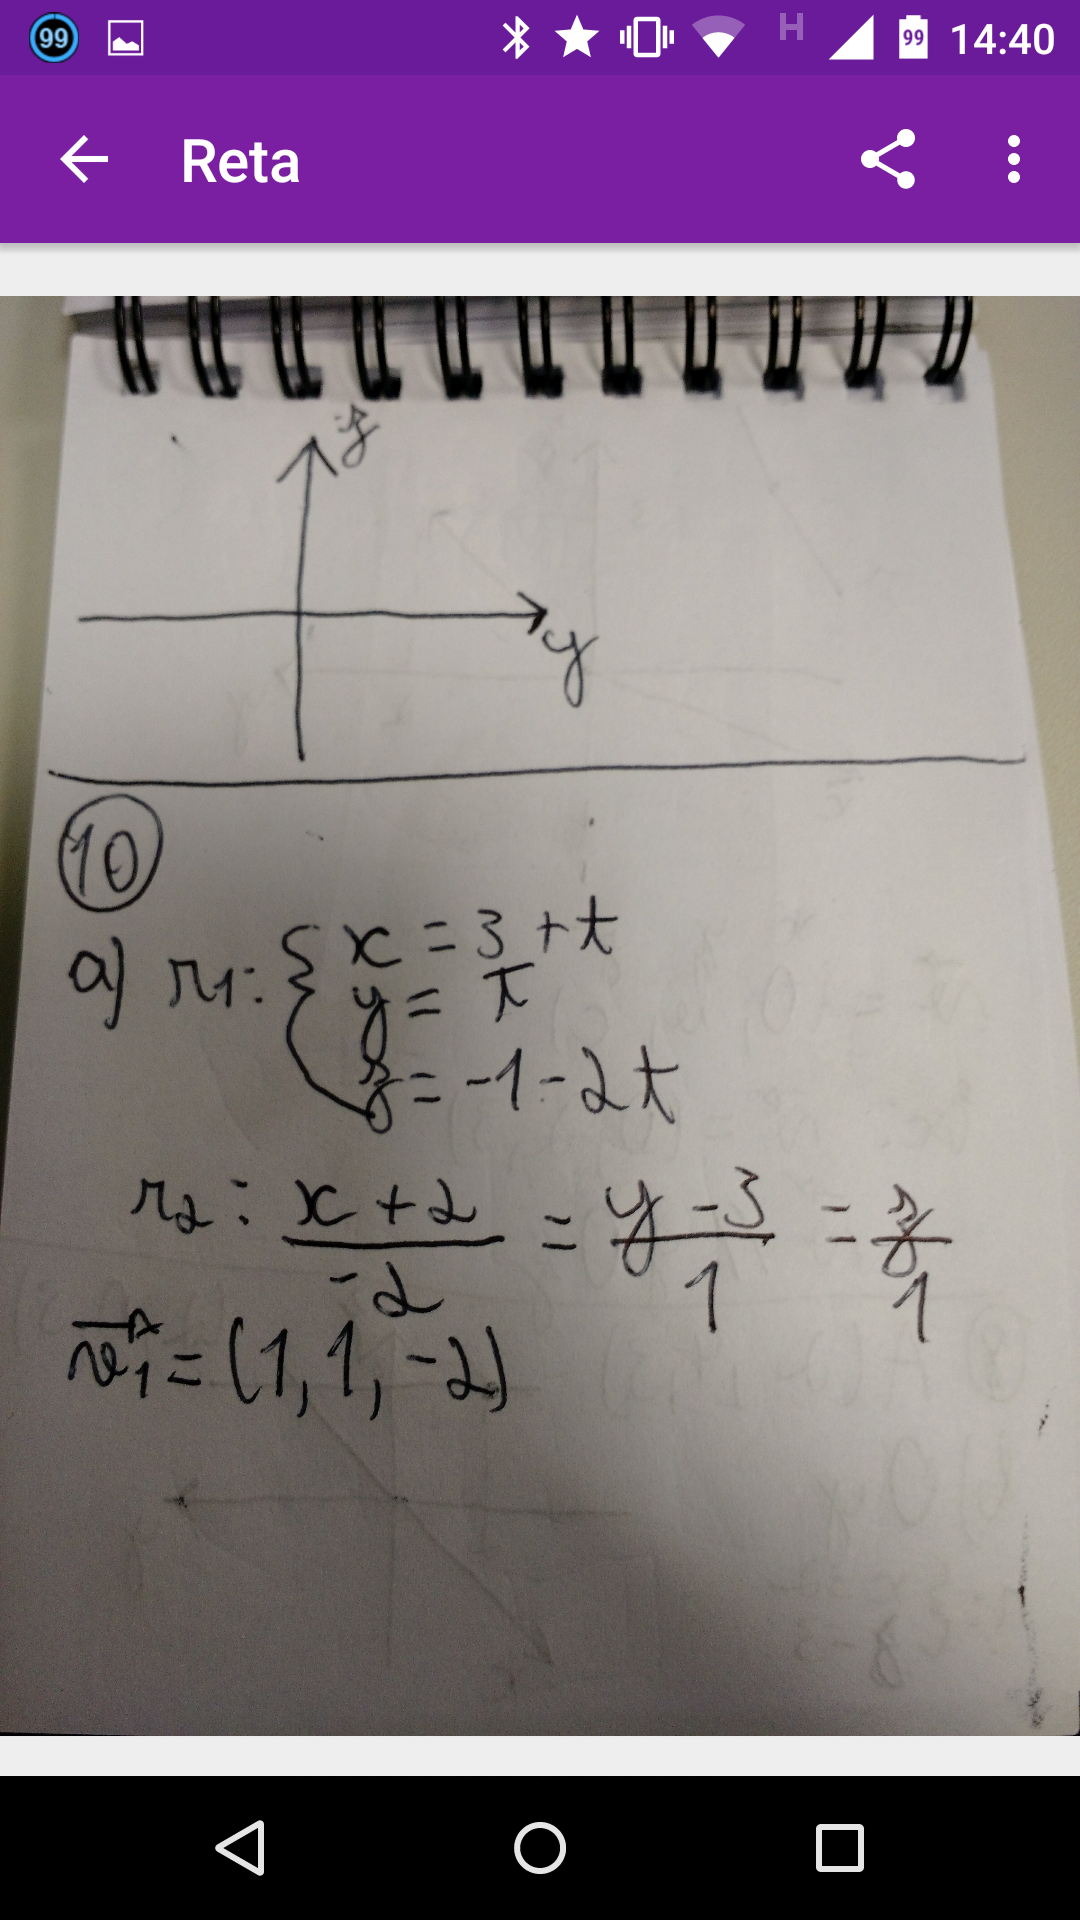 99 H 99 14:40
Reta
z
y
10
a) r1: { x = 3 + t
y = t
z = -1 - 2t
r2: x + 2 / -2 = y - 3 / 1 = z / 1
v1 = (1, 1, -2)